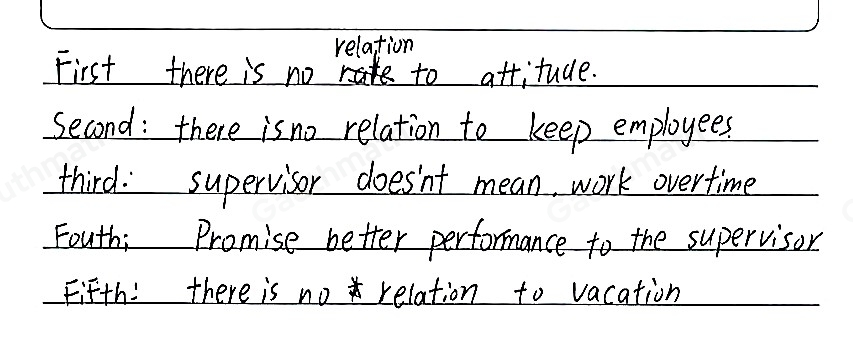 First there is no relation to attitude.
Second: there is no relation to keep employees.
third: supervisor does'nt mean. work overtime
Fouth; Promise better performance to the supervisor
Fifth: there is no relation to vacation